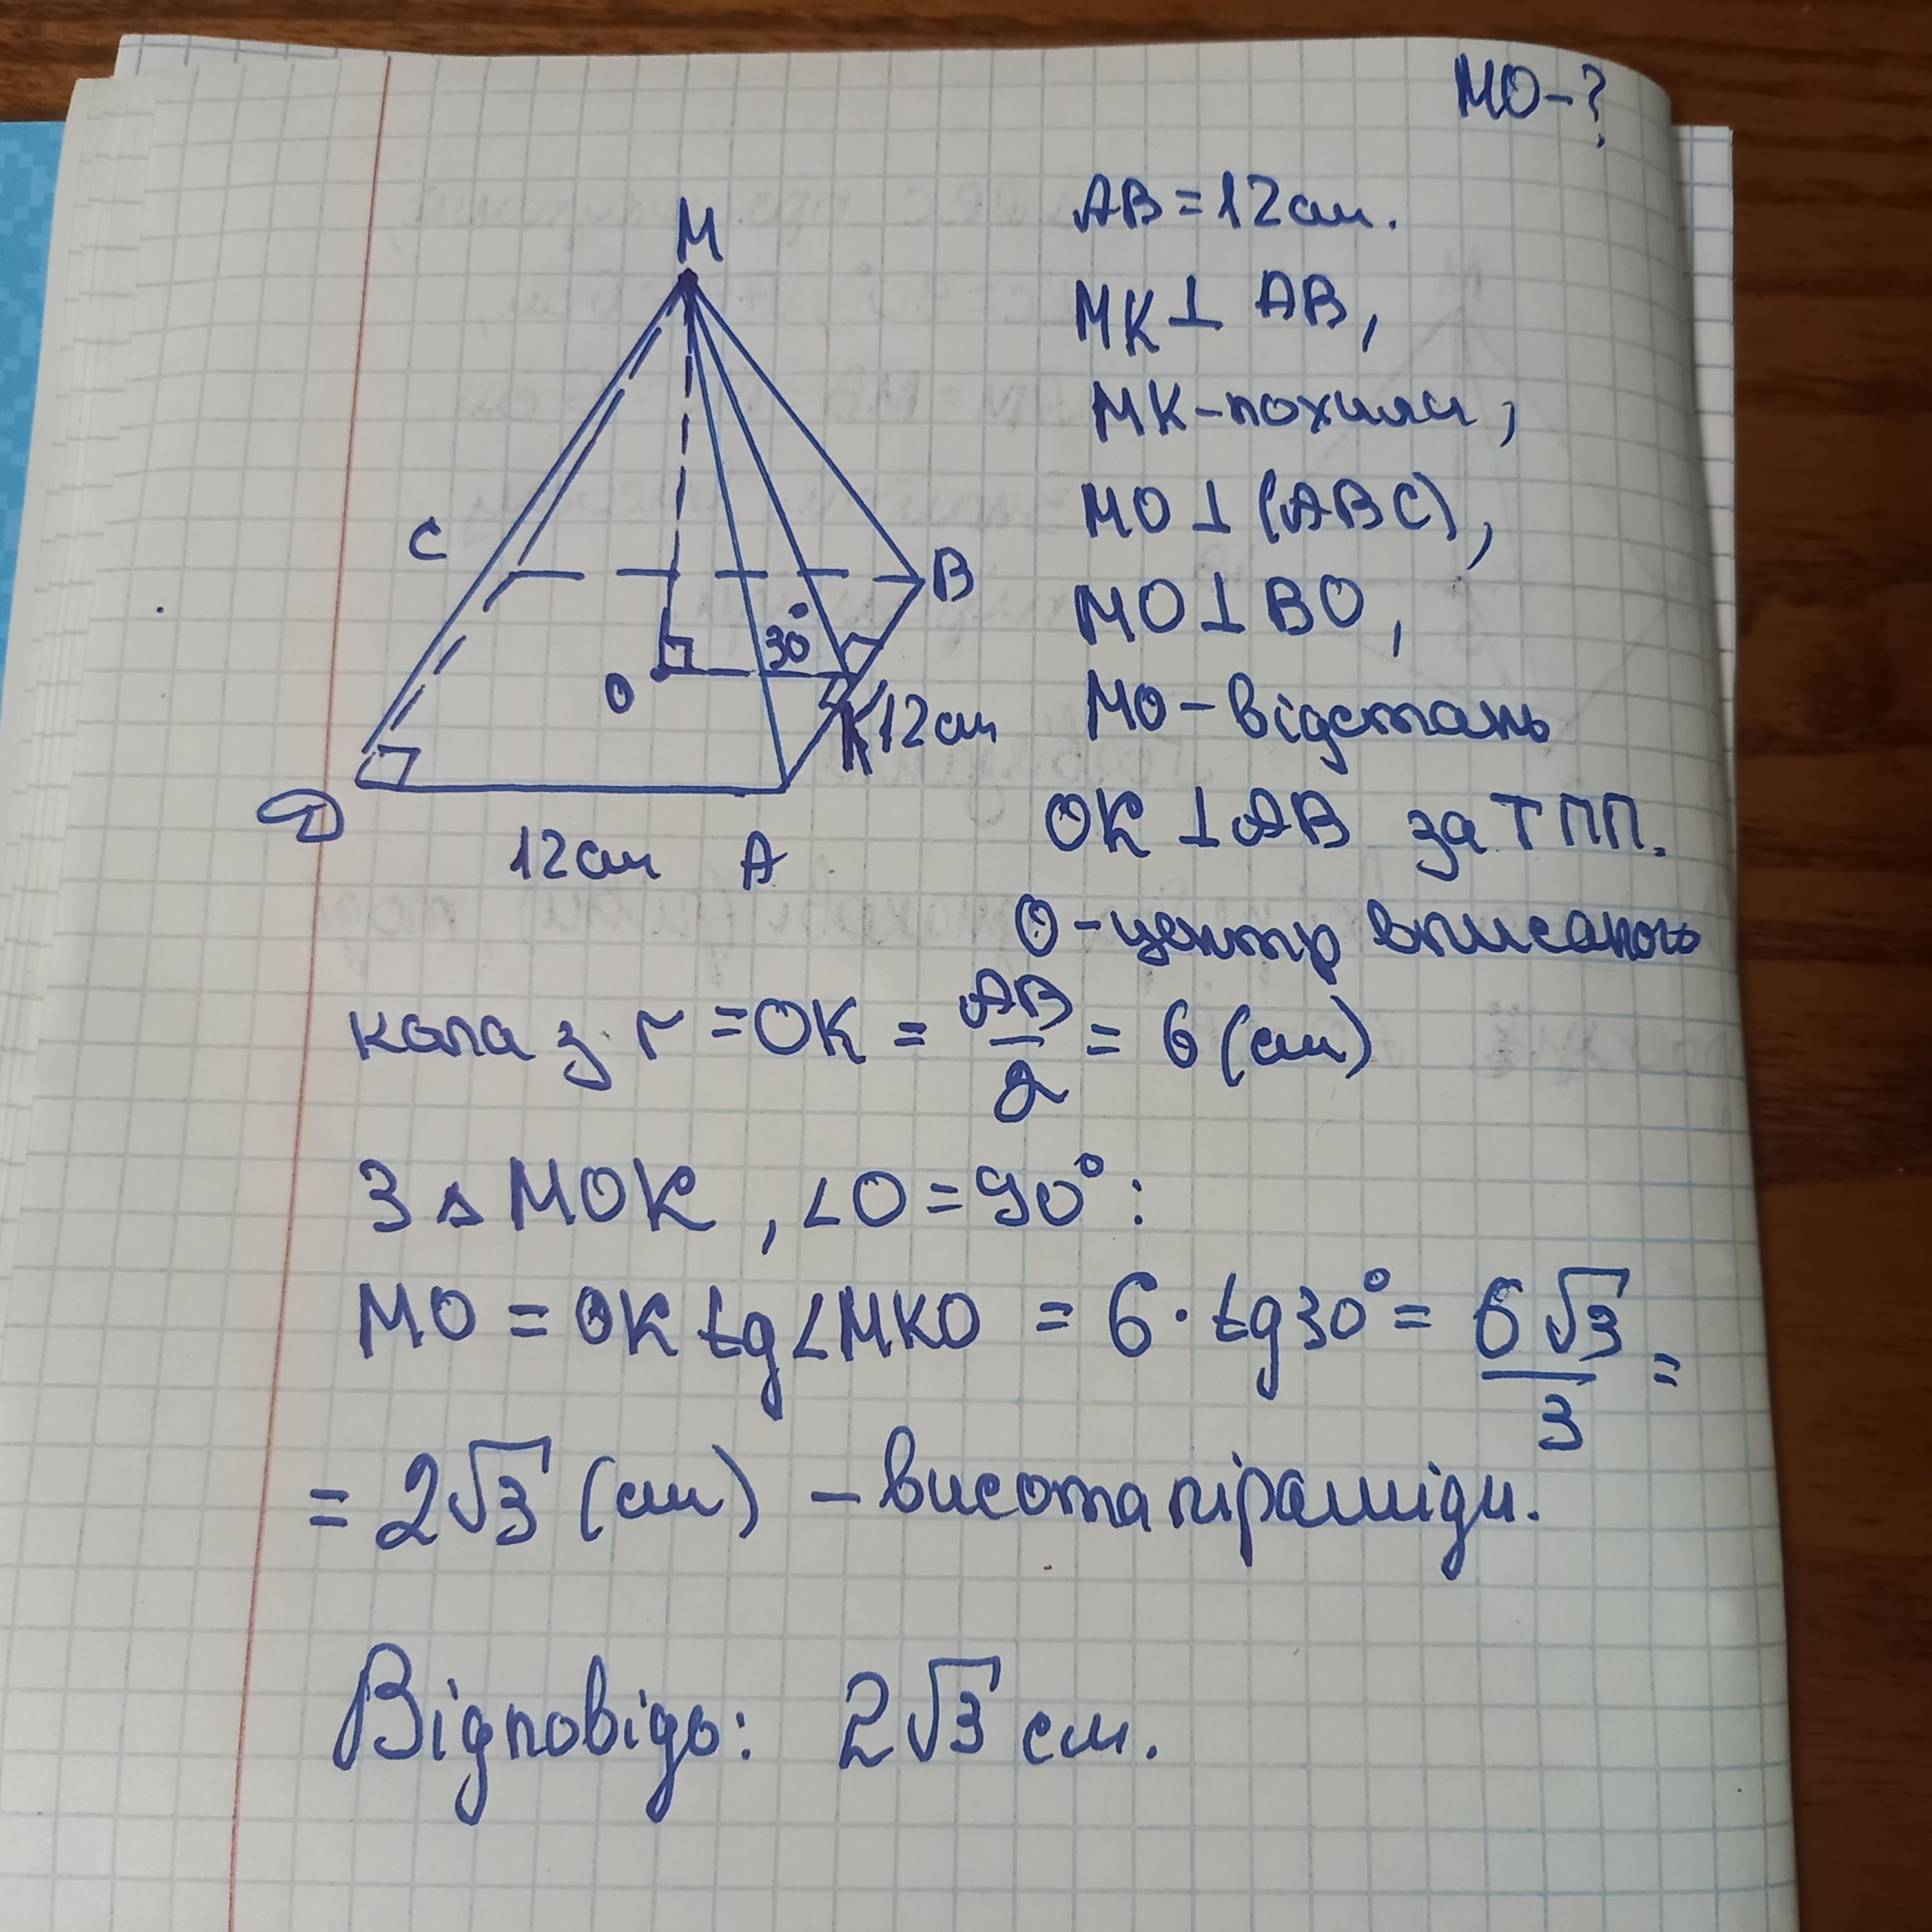 MO-?
M
AB = 12 см.
MK ⊥ AB,
MK - похили,
C
MO ⊥ (ABC),
B
MO ⊥ BO,
30°
O
K 12 см
MO - відстань
D
12 см A
OK ⊥ AB за ТПП.
O - центр вписаного
кола з r = OK = AB/2 = 6 (см)
З △ MOK, ∠O = 90° :
MO = OK tg∠MKO = 6 · tg30° = 6√3/3 =
= 2√3 (см) - висота піраміди.
Відповідь: 2√3 см.